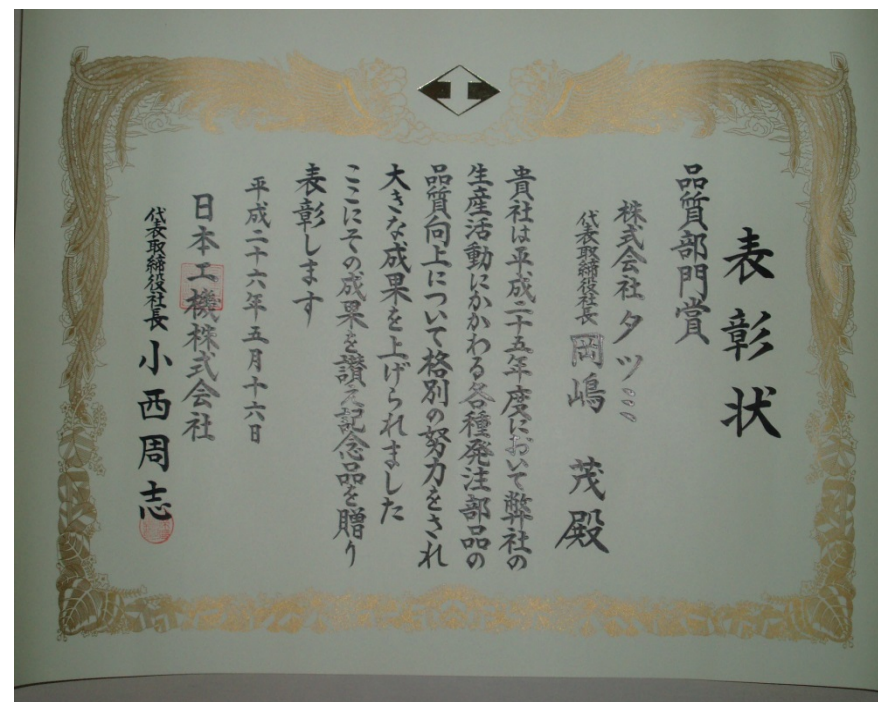 表彰状
品質部門賞
株式会社タツミ
代表取締役社長 岡嶋 茂殿
貴社は平成二十五年度において弊社の
生産活動にかかわる各種発注部品の
品質向上について格別の努力をされ
大きな成果を上げられました
ここにその成果を讃え記念品を贈り
表彰します
平成二十六年五月十六日
日本工機株式会社
代表取締役社長 小西周志